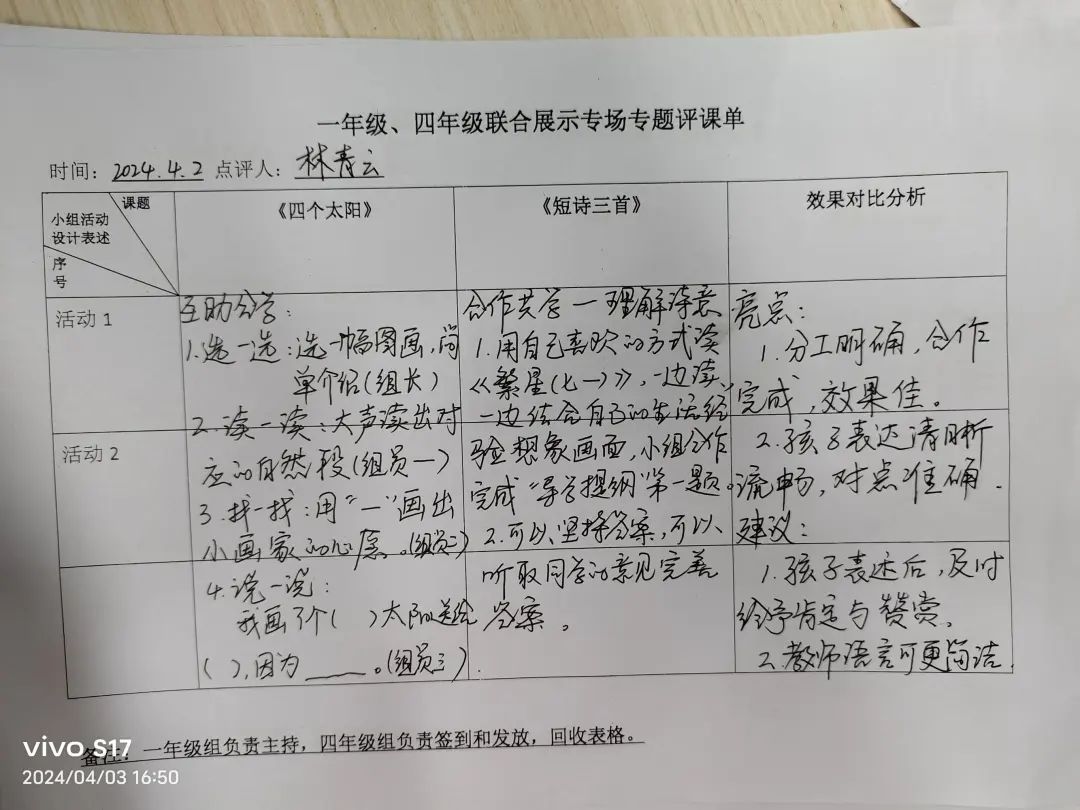 一年级、四年级联合展示专场专题评课单
时间：2024.4.2 点评人：林青云
课题
小组活动
设计表述
序
号
《四个太阳》
《短诗三首》
效果对比分析
活动1
活动2
互助分学：
1.选一选：选一幅图画，简
单介绍（组长）
2.读一读：大声读出对
应的自然段（组员一）
3.找一找：用“—”画出
小画家的心愿。（组员二）
4.说一说：
我画了个（ ）太阳送给
（ ），因为____。（组员三）
合作共学—理解诗意
1.用自己喜欢的方式读
《繁星（七一）》，一边读
一边结合自己的生活经
验想象画面，小组合作
完成“导学提纲”第一题。
2.可以坚持答案，可以
听取同学的意见完善
答案。
亮点：
1.分工明确，合作
完成，效果佳。
2.孩子表达清晰
流畅，对点准确。
建议：
1.孩子表述后，及时
给予肯定与赞赏。
2.教师语言可更简洁。
备注：一年级组负责主持，四年级组负责签到和发放，回收表格。
vivo S17
2024/04/03 16:50